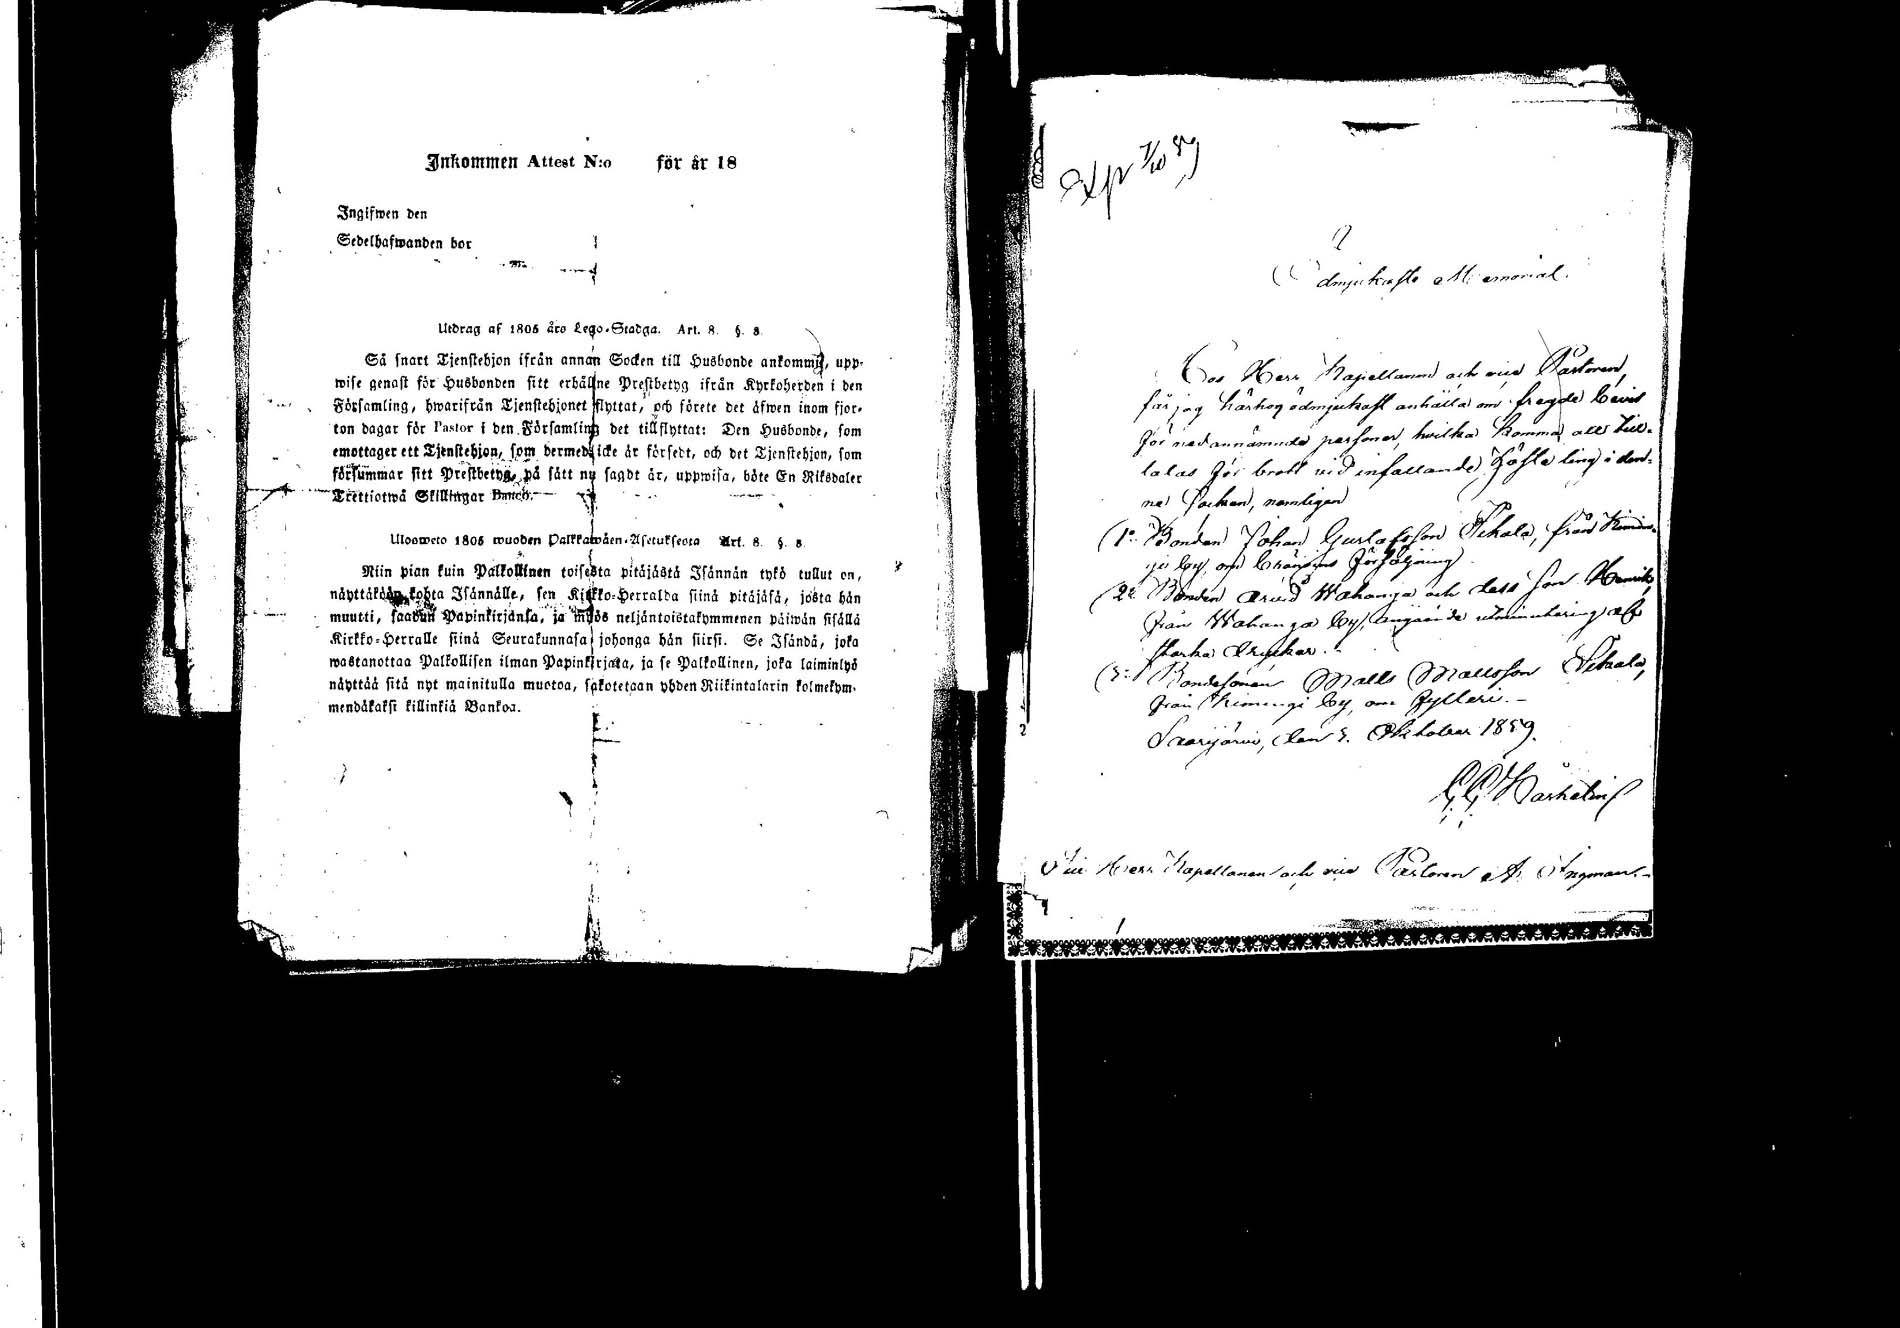 Inkommen Attest N:o för år 18
Ingifwen den
Sedelhafwanden bor
Utdrag af 1805 års Lego-Stadga. Art. 8. §. 8.
Så snart Tjenstehjon ifrån annan Socken till Husbonde ankommit, upp-
wise genast för Husbonden sitt erhållne Prestbetyg ifrån Kyrkoherden i den
Församling, hwarifrån Tjenstehjonet flyttat, och förete det äfwen inom fjor-
ton dagar för Pastor i den Församling det tillflyttat: Den Husbonde, som
emottager ett Tjenstehjon, som dermed icke är försedt, och det Tjenstehjon, som
försummar sitt Prestbetyg, på sätt nu sagdt är, uppwisa, böte En Riksdaler
Trettiotwå Skillingar Banco.
Ulosweto 1805 wuoden Palkkawäen-Asetuksesta Art. 8. §. 8.
Niin pian kuin Palkollinen toisesta pitäjästä Isännän tykö tullut on,
näyttäkään kohta Isännälle, sen Kirkko-Herralda siinä pitäjäsä, josta hän
muutti, saadun Papinkirjansa, ja myös neljäntoistakymmenen päiwän sisällä
Kirkko-Herralle siinä Seurakunnasa johonga hän siirsi. Se Isändä, joka
wastanottaa Palkollisen ilman Papinkirjata, ja se Palkollinen, joka laiminlyö
näyttää sitä nyt mainitulla muotoa, sakotetaan yhden Riikintalarin kolmekym-
mendäkaksi killinkiä Bankoa.
Ödmjukaste Memorial.
Hos Herr Kapellanen och vice Pastoren,
får jag härhos ödmjukast anhålla om fregde bevis
för nedannämnde personer, hvilka komma att till-
talas för brott vid infallande Höste ting i den-
na Socken, nemligen
1o Bonden Johan Gustafsson Pekala, från Kimin-
gi by, om
2o Bonden Arvid Wahanga och dess son Henrik,
från Wahanga by, angående utminutering af
starka drycker.
3o Bondesonen Matts Mattsson Pekala,
från Kimingi by, om fylleri.
Saarijärvi, den 5. Oktober 1859.
Till Herr Kapellanen och vice Pastoren A. Ingman.